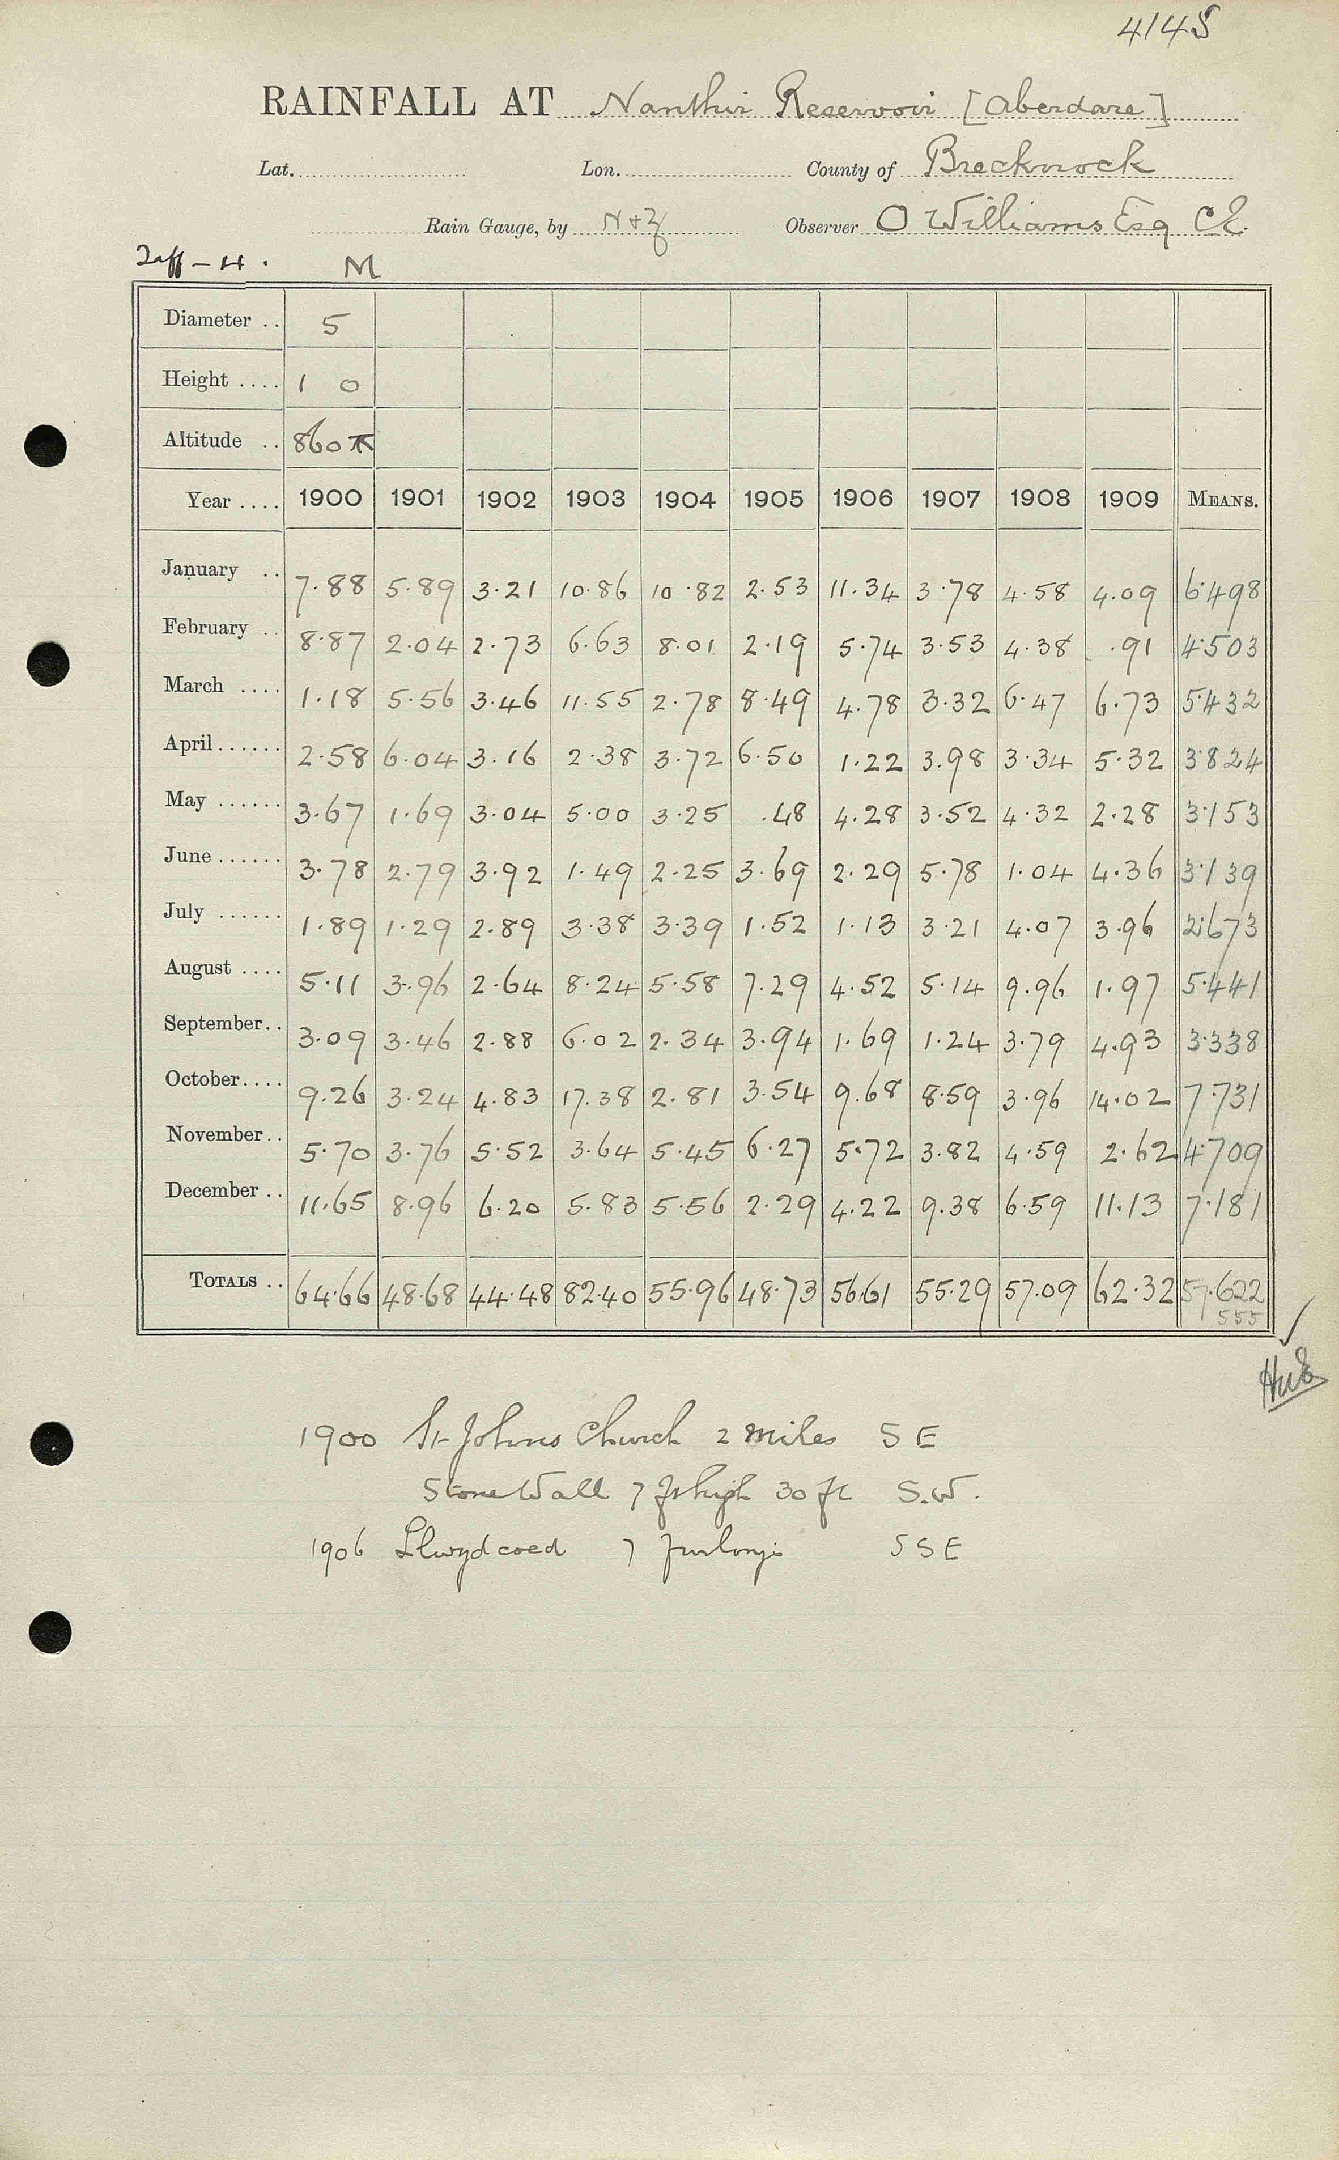 4145
RAINFALL AT Nanthir Reservoir [Aberdare]
Lat. Lon. County of Brecknock
Rain Gauge, by N+Z Observer O Williams Esq CE
Taff - H. M
Diameter .. 5
Height .... 1 0
Altitude .. 860 T
Year .... 1900 1901 1902 1903 1904 1905 1906 1907 1908 1909 MEANS.
January .. 7.88 5.89 3.21 10.86 10.82 2.53 11.34 3.78 4.58 4.09 6.498
February .. 8.87 2.04 2.73 6.63 8.01 2.19 5.74 3.53 4.38 .91 4.503
March .... 1.18 5.56 3.46 11.55 2.78 8.49 4.78 3.32 6.47 6.73 5.432
April...... 2.58 6.04 3.16 2.38 3.72 6.50 1.22 3.98 3.34 5.32 3.824
May ...... 3.67 1.69 3.04 5.00 3.25 .48 4.28 3.52 4.32 2.28 3.153
June ...... 3.78 2.79 3.92 1.49 2.25 3.69 2.29 5.78 1.04 4.36 3.139
July ...... 1.89 1.29 2.89 3.38 3.39 1.52 1.13 3.21 4.07 3.96 2.673
August .... 5.11 3.96 2.64 8.24 5.58 7.29 4.52 5.14 9.96 1.97 5.441
September.. 3.09 3.46 2.88 6.02 2.34 3.94 1.69 1.24 3.79 4.93 3.338
October.... 9.26 3.24 4.83 17.38 2.81 3.54 9.68 8.59 3.96 14.02 7.731
November.. 5.70 3.76 5.52 3.64 5.45 6.27 5.72 3.82 4.59 2.62 4.709
December .. 11.65 8.96 6.20 5.83 5.56 2.29 4.22 9.38 6.59 11.13 7.181
TOTALS .. 64.66 48.68 44.48 82.40 55.96 48.73 56.61 55.29 57.09 62.32 57.622
555
1900 St Johns Church 2 miles S E
Stone Wall 7 ft high 30 ft S.W.
1906 Llwydcoed 7 furlongs S S E